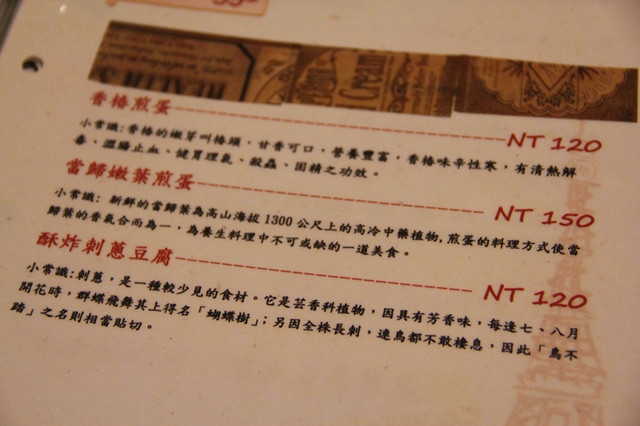 香椿煎蛋 NT 120
小常識:香椿的嫩芽叫椿頭，甘香可口，營養豐富，香椿味辛性寒，有清熱解
毒、澀腸止血、健胃理氣、殺蟲、固精之功效。
當歸嫩葉煎蛋 NT 150
小常識: 新鮮的當歸葉為高山海拔1300公尺上的高冷中藥植物,煎蛋的料理方式使當
歸葉的香氣合而為一，為養生料理中不可或缺的一道美食。
酥炸刺蔥豆腐 NT 120
小常識:刺蔥，是一種較少見的食材。它是芸香科植物，因具有芳香味，每逢七、八月
開花時，群蝶飛舞其上得名「蝴蝶樹」；另因全株長刺，連鳥都不敢棲息，因此「鳥不
踏」之名則相當貼切。